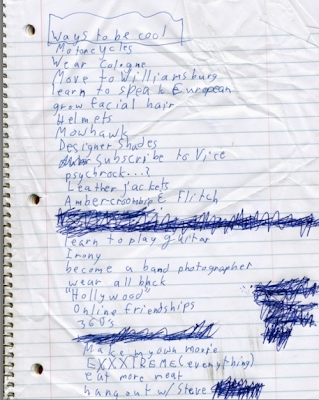 Ways to be cool
Motorcycles
Wear Cologne
Move to Williamsburg
learn to speak European
grow facial hair
Helmets
Mowhawk
Designer Shades
Subscribe to Vice
psychrock...?
Leather jackets
Ambercrombie & Flitch
learn to play guitar
Irony
become a band photographer
wear all black
"Hollywood"
Online friendships
360's
Make my own movie
EXXXTREME (everything)
eat more meat
hang out w/ Steve